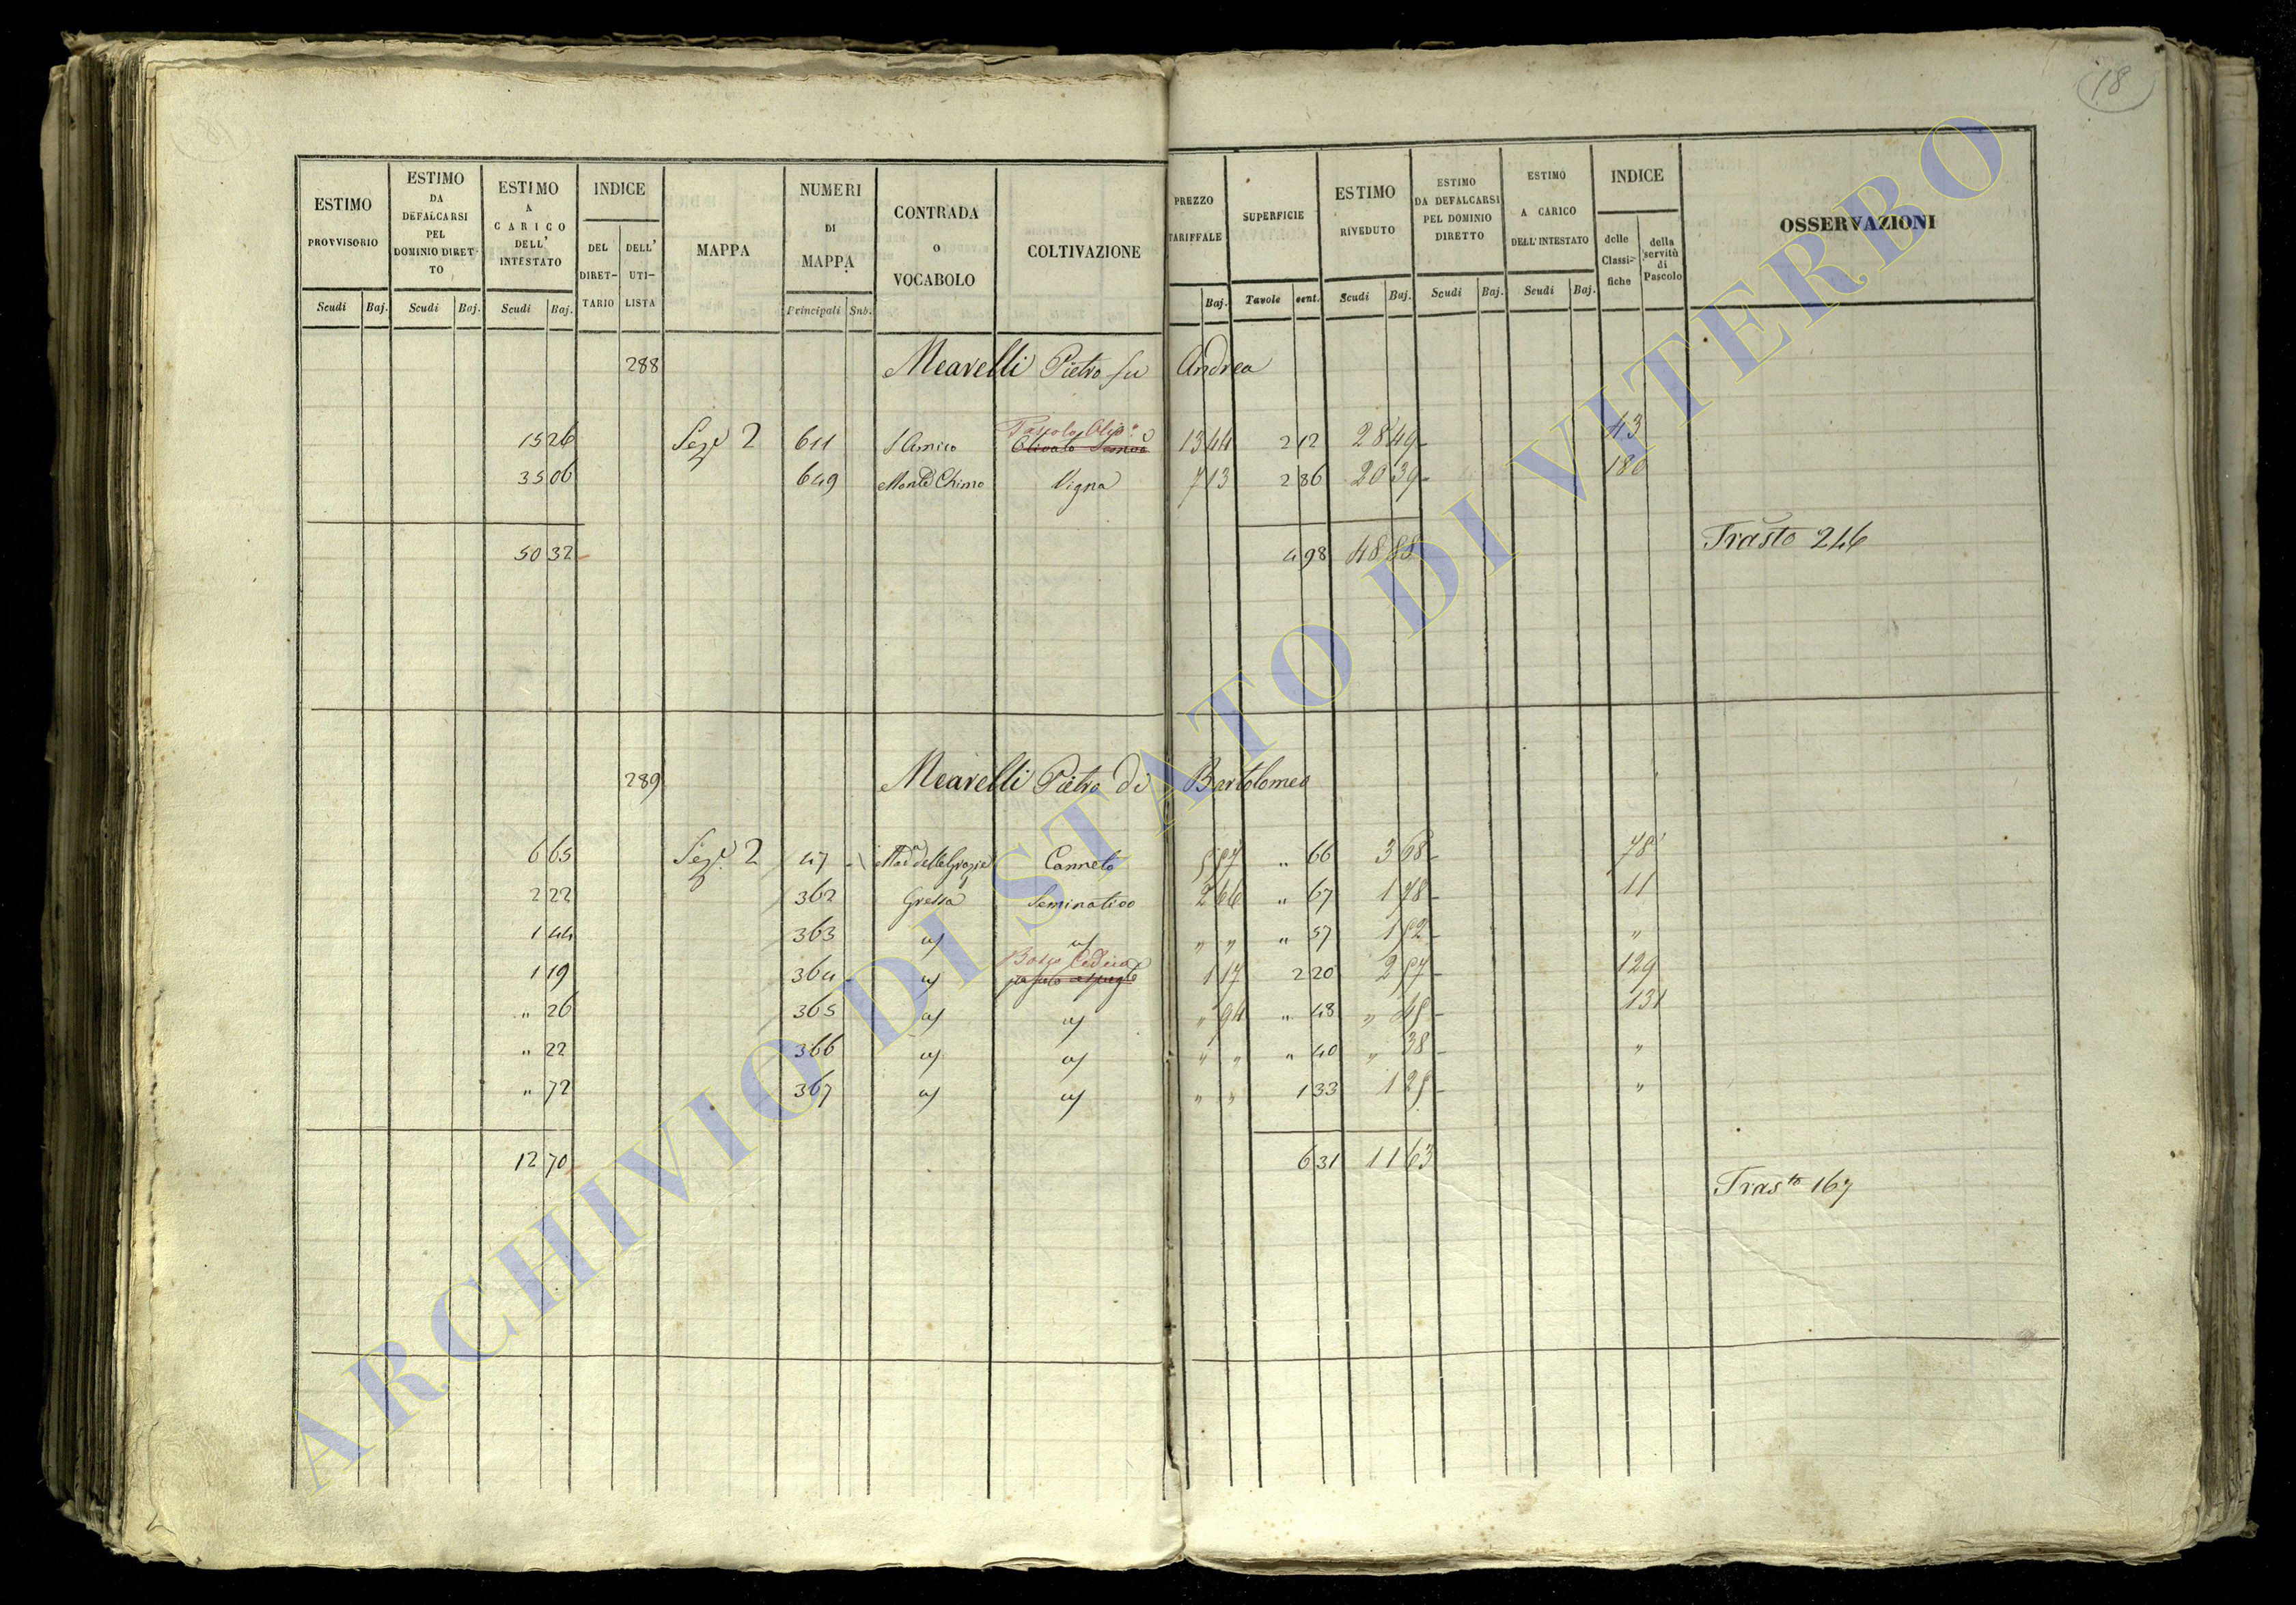 18
ESTIMO PROVVISORIO
ESTIMO DA DEFALCARSI PEL DOMINIO DIRET-TO
ESTIMO A CARICO DELL' INTESTATO
INDICE
DEL DIRET-TARIO
DELL' UTI-LISTA
MAPPA
NUMERI DI MAPPA
CONTRADA O VOCABOLO
COLTIVAZIONE
PREZZO TARIFFALE
SUPERFICIE
ESTIMO RIVEDUTO
ESTIMO DA DEFALCARSI PEL DOMINIO DIRETTO
ESTIMO A CARICO DELL'INTESTATO
INDICE
delle Classi-fiche
della servitù di Pascolo
OSSERVAZIONI
Scudi Baj. Scudi Baj. Scudi Baj. Principali Sub. Baj. Tavole cent. Scudi Baj. Scudi Baj. Scudi Baj.
288 Mearelli Pietro fu Andrea
Pascolo Oliv.º
15 26 Sez.e 2 611 S Amico 13 44 2 12 28 49 43
35 06 649 Monte Chimo Vigna 7 13 2 86 20 39 180
50 32 4 98 48 88 Trasto 246
289 Mearelli Pietro di Bartolomeo
6 65 Sez.e 2 47 Mad.a delle Grazie Canneto 5 57 " 66 3 68 78
2 22 362 Gressa Seminativo 2 66 " 67 1 78 11
1 44 363 " " " 57 1 52 "
Bosco Ceduo
1 19 364 1 17 2 20 2 57 129
" 26 365 " 94 " 48 " 45 131
" 22 366 " " " 40 " 38 "
" 72 367 " " 1 33 1 25 "
12 70 6 31 11 63
Tras.to 167
ARCHIVIO DI STATO DI VITERBO